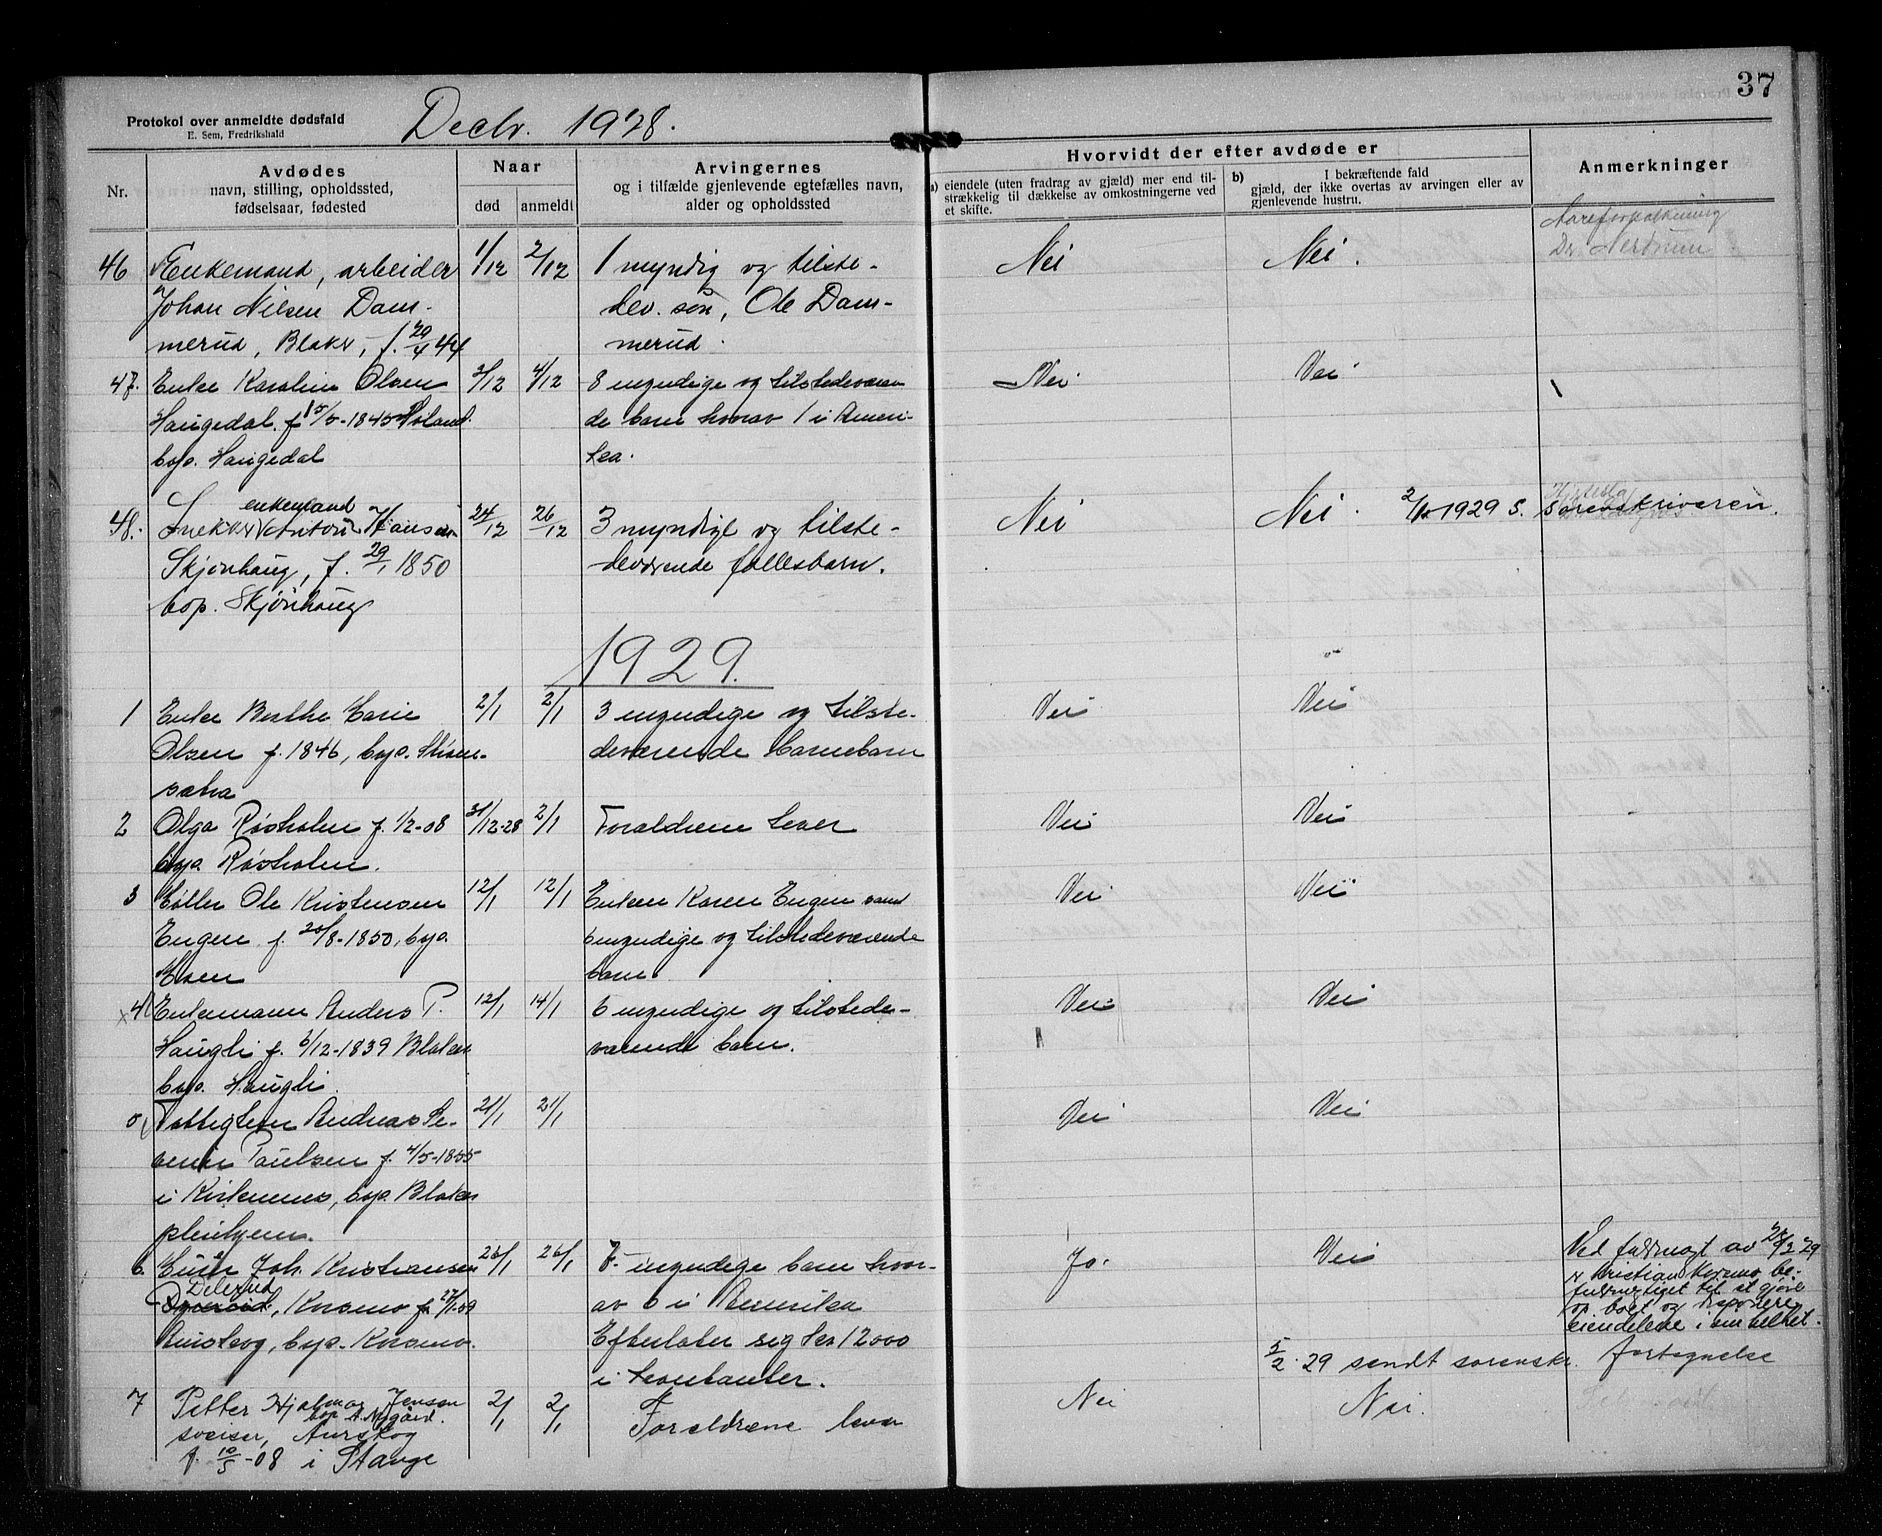 37
Protokol over anmeldte dødsfald
E. Sem, Fredrikshald
Decbr. 1928.
Nr.
Avdødes
navn, stilling, opholdssted,
fødselsaar, fødested
Naar
død
anmeldt
Arvingernes
og i tilfælde gjenlevende egtefælles navn,
alder og opholdssted
Hvorvidt der efter avdøde er
a) eiendele (uten fradrag av gjæld) mer end til-
strækkelig til dækkelse av omkostningerne ved
et skifte.
b) I bekræftende fald
gjæld, der ikke overtas av arvingen eller av
gjenlevende hustru.
Anmerkninger
Aareforkalkning
Dr. Nerdrum
46 Enkemand, arbeider 1/12 2/12 1 myndig og tilste- Nei Nei.
Johan Nilsen Dam- dev. søn, Ole Dam-
merud, Blakr, f. 20/4 44 merud.
47. Enke Karoline Olsen 3/12 4/12 8 myndige og tilstedeværen Nei Nei
Haugedal. f. 15/5-1845 Høland. de barn hvorav 1 i Ameri-
bop. Haugedal ka.
enkemand
48. Snekker Anton Hansen 24/12 26/12 3 myndige og tilste- Nei Nei. 1929 S. Sorenskriveren.
Skjønhaug, f. 29/1 1850 deværende fellesbarn.
bop. Skjønhaug
1929.
1 Enke Berthe Marie 2/1 2/1 3 myndige og tilste- Nei Nei
Olsen f. 1846, bop. deværende barnebarn
2 Olga Røsholen f. 1/2-08 31/12-28 2/1 Forældrene lever Nei Nei
bop. Røsholen.
3 Møller Ole Kristensen 12/1 12/1 Enken Karen Engen samt Nei Nei
Engen f. 20/8-1850, bop. 6 myndige og tilstedeværende
Moen barn.
4 Enkemann Anders P. 12/1 14/1 6 myndige og tilstede- Nei Nei
Haugli f. 6/12-1839 Blaker værende barn.
bop. Haugli.
5 Fattiglem Andreas Se- 21/1 21/1 Nei Nei
verin Paulsen f. 4/5-1855
i Kristiania, bop. Blaker
pleiehjem.
6. Enke Joh. Kristiansen 26/1 26/1 7 myndige barn hvor- Jo. Nei Ved fuldmagt av 29
Delerud
Kosmo f. 27/1-59 av 6 i Amerika Kristian Kosmo be-
fuldmægtiget til at gjøre
op boet og disponere
eiendelene i sin helhet.
bop. Kosmo. Efterlater sig kr 12000
i kontanter. 5/2.29 sendt sorenskr. fortegnelse
7 Petter Hjalmar Jensen 2/1 2/1 Forældrene lever Nei Nei.
bop. A. Nygård.
sveiser, Aurskog
f. 10/5-08 i Stange